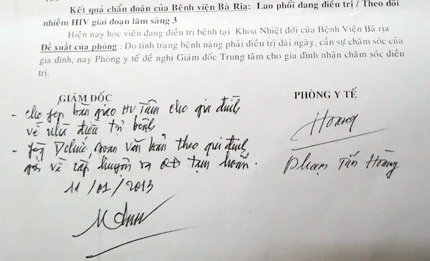 Kết quả chẩn đoán của Bệnh viện Bà Rịa: Lao phổi đang điều trị / Theo dõi
nhiễm HIV giai đoạn lâm sàng 3
Hiện nay học viên đang điều trị bệnh tại Khoa Nhiệt đới của Bệnh Viện Bà rịa
Đề xuất của phòng : Do tình trạng bệnh nặng phải điều trị dài ngày, cần sự chăm sóc của
gia đình, nay Phòng y tế đề nghị Giám đốc Trung tâm cho gia đình nhận chăm sóc điều
trị.
GIÁM ĐỐC
PHÒNG Y TẾ
- cho phép bàn giao HV Tâm cho gia đình
về nhà điều trị bệnh
- văn bản theo qui định
về tạm hoãn.
11/01/2013
Hoang
Phạm Tấn Hoàng